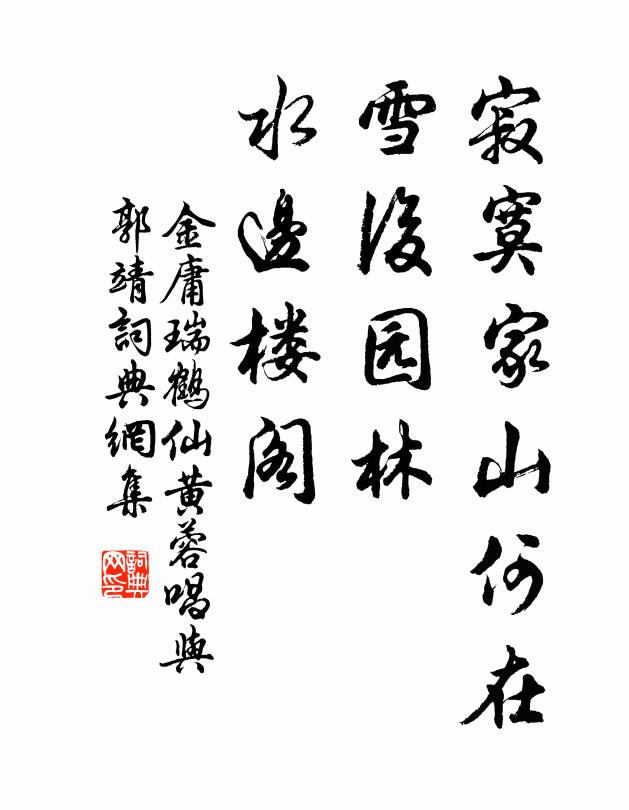 寂寞家山何在
雪後园林
水邊楼阁
金庸瑞鶴仙黄蓉唱與
郭靖詞典網集
詞典
网印